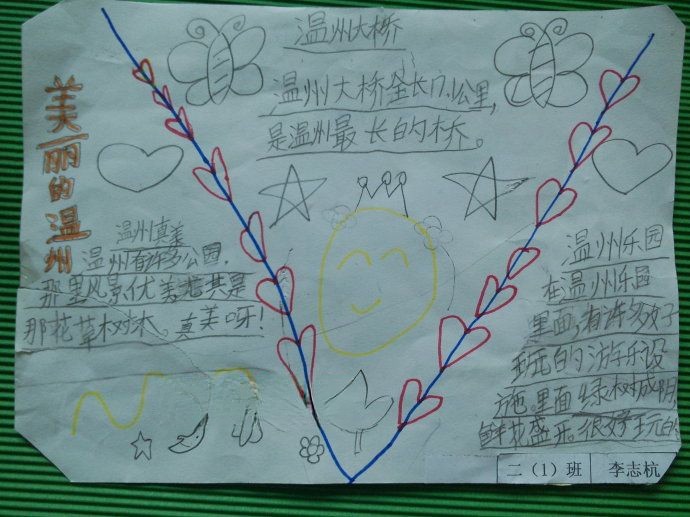 美丽的温州
温州大桥
温州大桥全长17.1公里,
是温州最长的桥。
温州真美
温州有许多公园,
那里风景优美尤其是
那花草树木。真美呀!
温州乐园
在温州乐园
里面,有许多好
玩的游乐设
施。里面绿树成阴
鲜花盛开很好玩的
二(1)班 李志杭